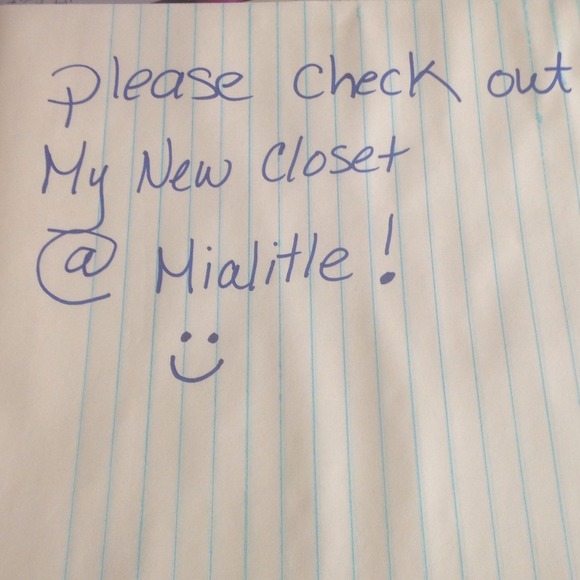 Please check out
My New Closet
@ Mialitle!